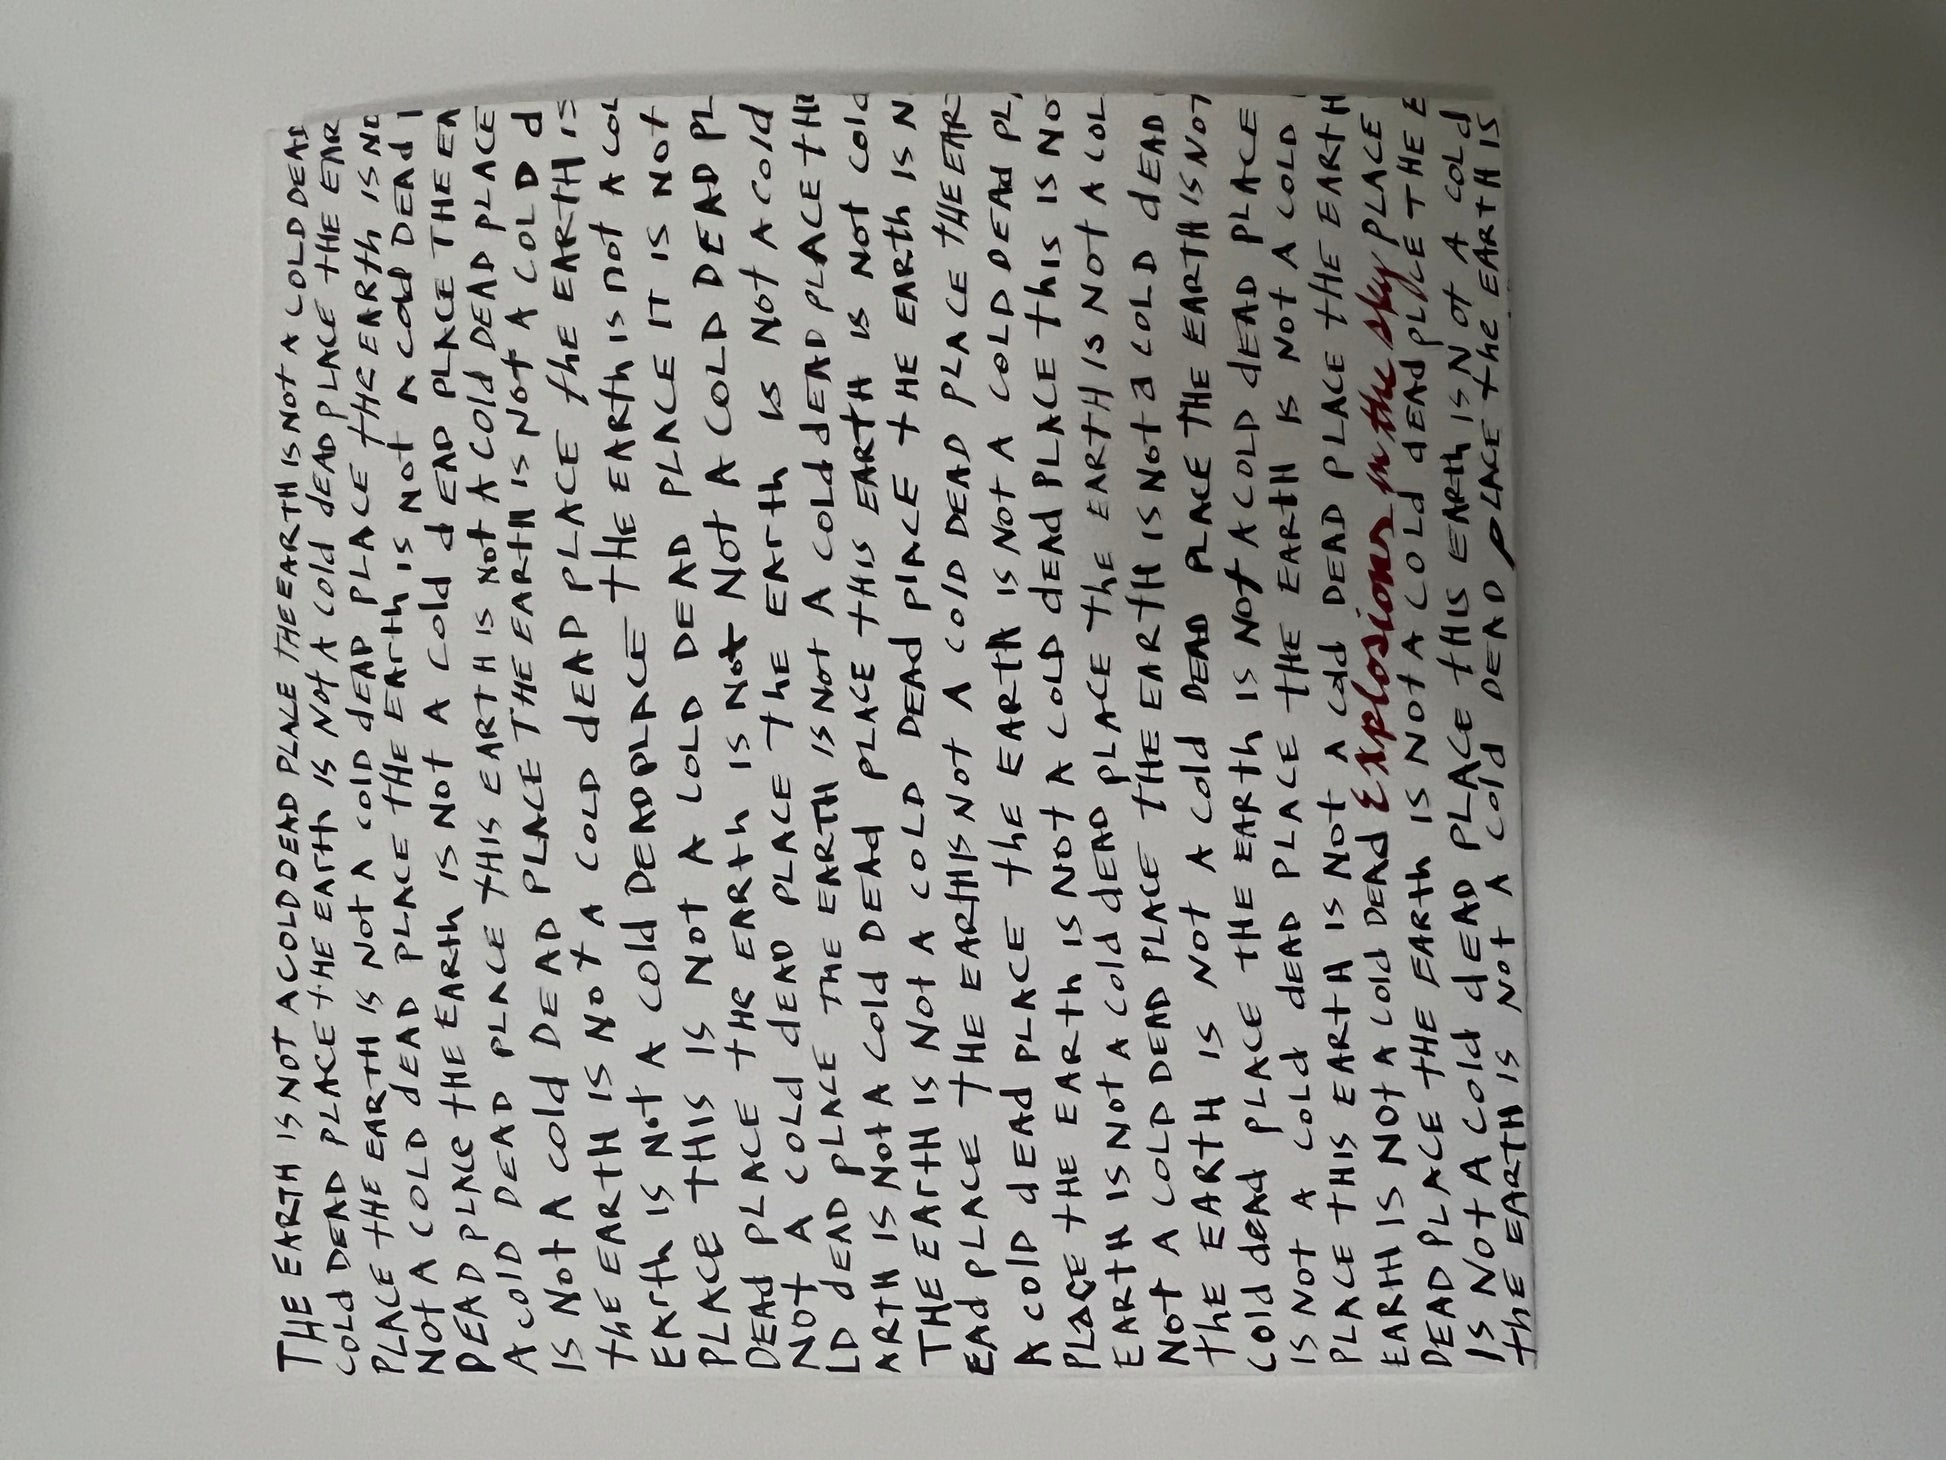 THE EARTH IS NOT A COLD DEAD PLACE THE EARTH IS NOT A COLD DEAD
COLD DEAD PLACE tHE EArth IS NOt A COld dEAD PLACE tHE EAR
PLACE tHE EARTH IS NOt A COlD dEAD PLACE tHE EARth IS NO
NOT A COLD dEAD PLACE tHE EArth IS NOt A COld DEAd I
DEAD PLACE tHE EARth IS NOT A COld dEAD PLACE THE EA
A COlD DEAD PLACE tHIS EARTH IS NOt A COld DEAD PLACE
IS NOt A COld DEAD PLACE THE EARtH IS NOt A COLD d
thE EARTH IS NOt A COLD dEAD PLACE thE EARtH IS
EArth IS NOt A COld DEAD PLACE tHE EARth IS nOt A COL
PLACE tHIS IS NOT A COLD DEAD PLACE IT IS NOt
DEAd PLACE tHE EARth IS NOt NOt A COLD DEAD PL
NOt A COLd dEAD PLACE the EArth IS NOt A COld
LD dEAD PLACE THE EARTH IS NOt A COLd dEAD PLACE tHE
ARTH IS NOt A COld DEAd PLACE tHIS EARtH IS NOt COld
THE EArtH IS NOt A COLD DEAd PlACE tHE EARth IS N
EAd PLACE tHE EARtH IS NOt A COlD DEAD PLACE tHE EAR
A COlD dEAD PLACE thE EARtH IS NOt A COLD DEAd PL
PLACE tHE EARTh IS NOt A COLD dEAd PLACE thIS IS NO
EARTH IS NOt A COld dEAD PLACE thE EARtH IS NOt A COL
NOt A COLD DEAD PLACE tHE EARTH IS NOt a COLD dEAD
thE EARTH IS NOt A COld DEAD PLACE THE EARTH IS NOT
COld dead PLACE tHE EARth IS NOt A COLD dEAD PLACE
IS NOt A COLd dEAD PLACE tHE EARtH IS NOt A COLD
PLACE tHIS EARtH IS NOt A COld DEAD PLACE tHE EARtH
EARtH IS NOt A COld DEAD Explosions in the sky PLACE
DEAD PLACE tHE EARth IS NOt A COLd dEAd PLACE tHE E
IS NOt A COld dEAD PLACE tHIS EARth IS NOt A COld
thE EARTH IS NOt A COld DEAD PLACE the EARtH IS